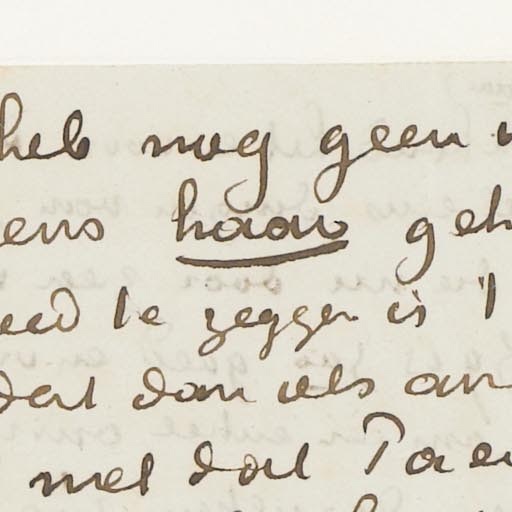 heb nog geen
ens haar geh
eed te zeggen is 't
dat dan als an
met dat Ta